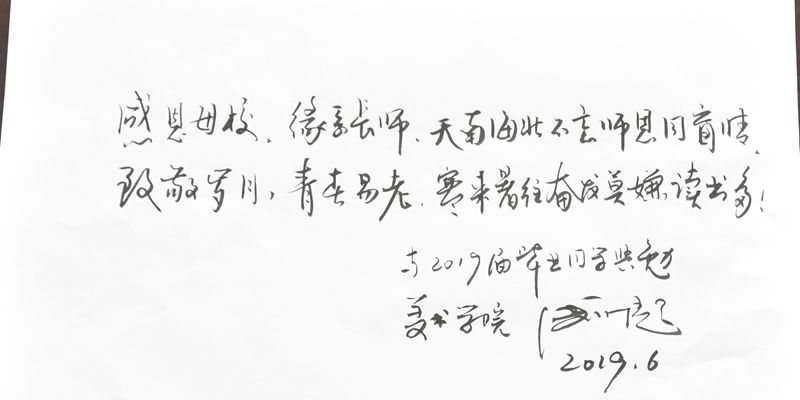 感恩母校、缘系長师、天南海北不忘师恩同窗情、
致敬岁月，青春易老、寒来暑往奋发莫嫌读书多！
与2019届毕业同学共勉
美术学院 题
2019.6